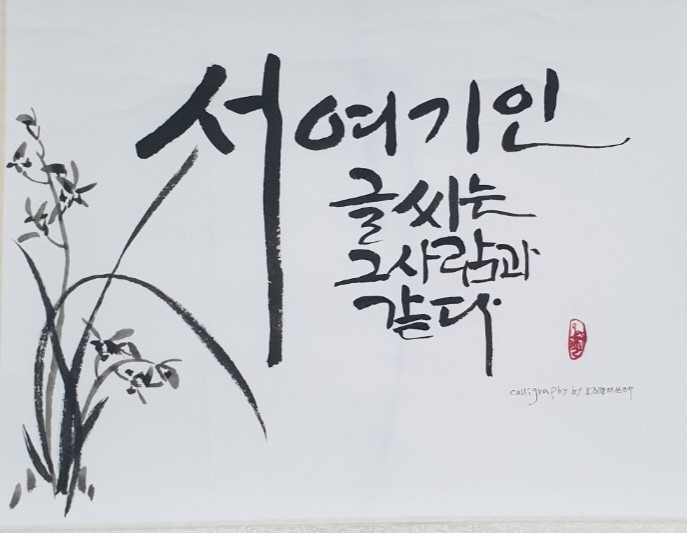 서여기인
글씨는
그사람과
같다
calligraphy by